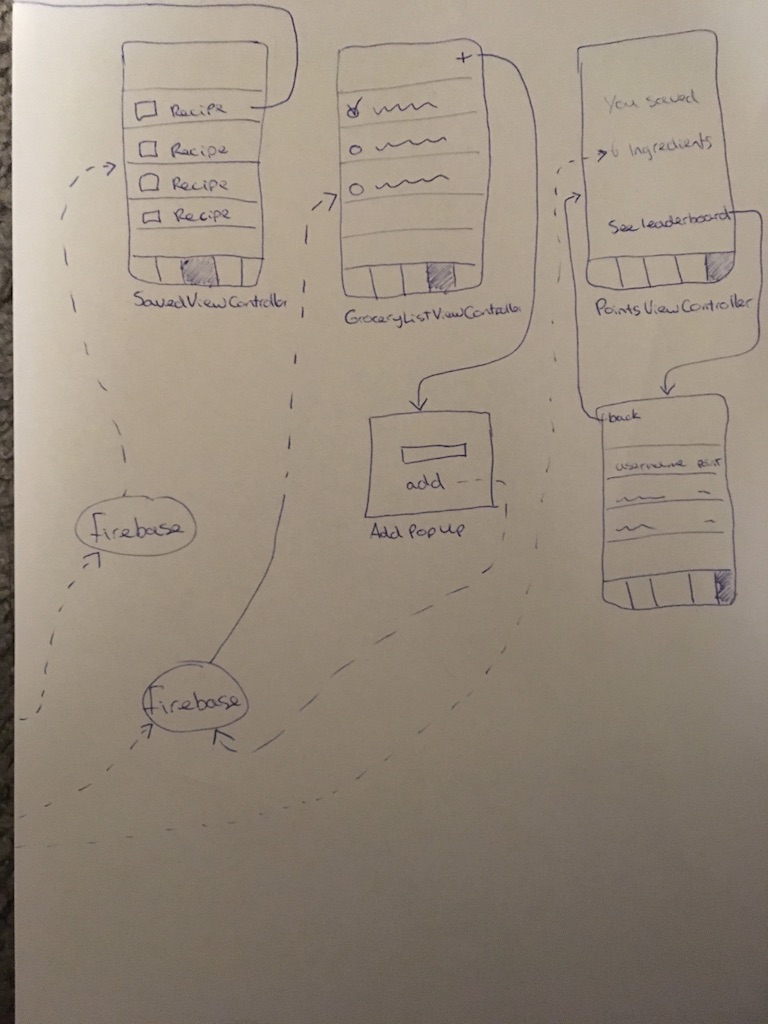 Recipe
Recipe
Recipe
Recipe
SavedViewController
+
GroceryListViewController
You saved
6 Ingredients
See leaderboard
PointsViewController
back
username point
add
AddPopUp
firebase
firebase